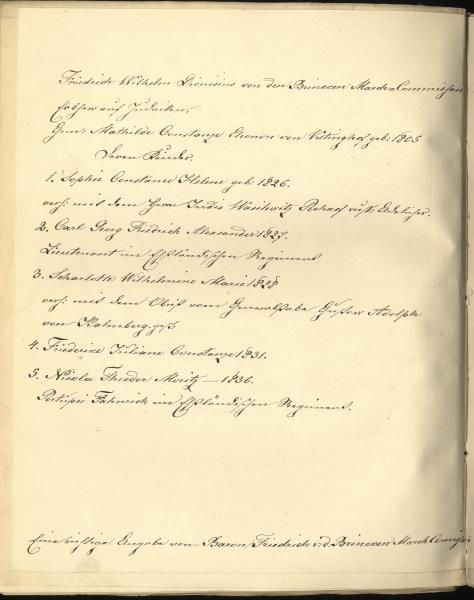 Friedrich Wilhelm Dionisius von den Brincken Marsch-Commissair
Erbherr auf
Gem: Mathilde Constanze Eleonore von Vitinghof geb: 1805
Deren Kinder.
1. Sophie Constance Helene geb: 1826.
verh: mit dem Herrn
2. Carl Georg Friedrich Alexander 1827.
Lieutenant im Estländischen Regiment
3. Scharlotte Wilhelmine Marie 1828
verh: mit dem Obrist vom Generalstabe Gustav Adolph
von
4. Friederike Juliane Constanze 1831.
5. Nicolai Theodor Moritz — 1836.
Portupei Fähnrich im Estländischen Regiment.
Eine richtige Eingabe von Baron Friedrich v. d. Brincken Marsch